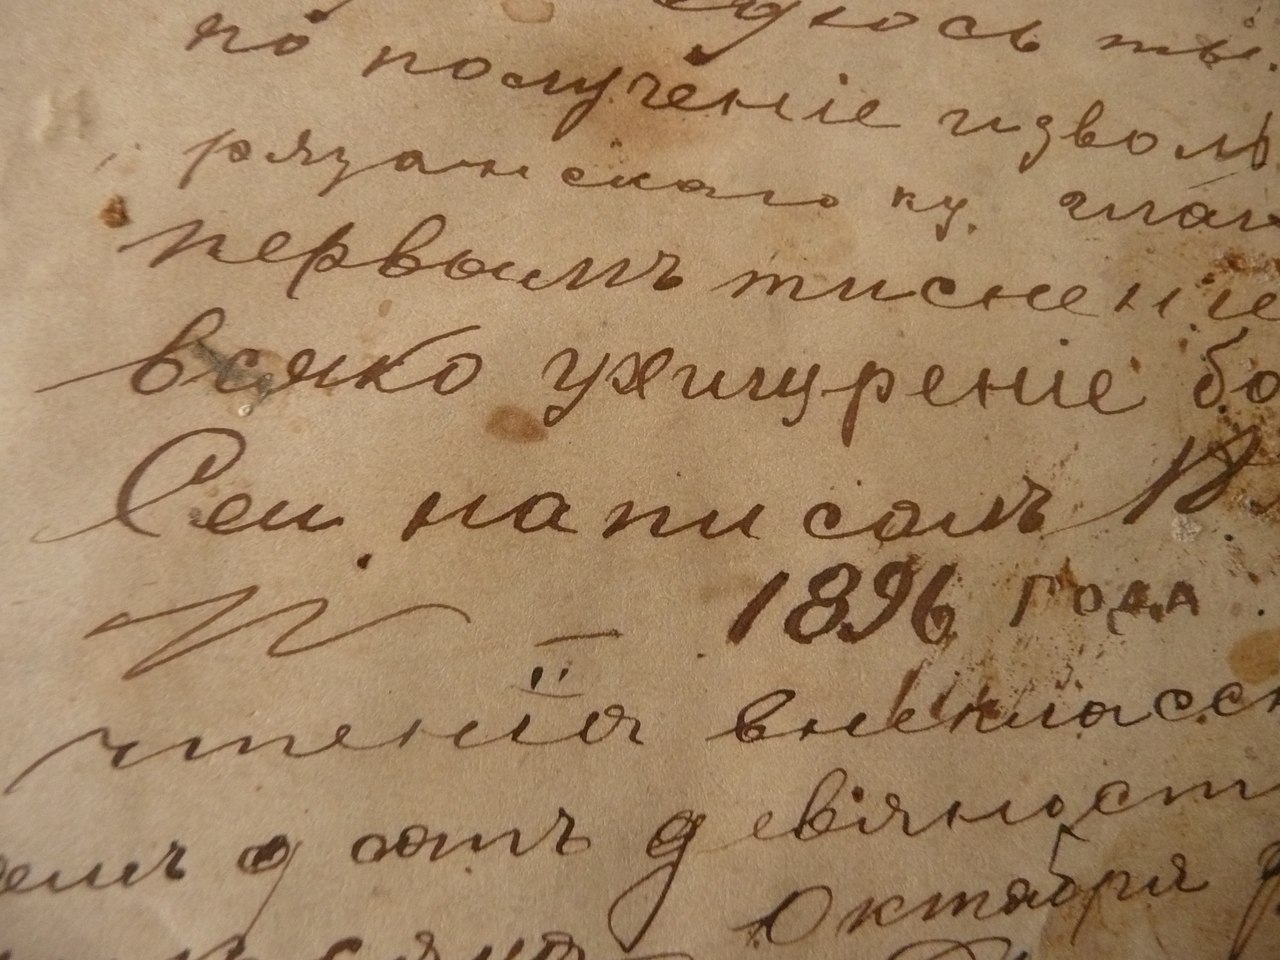 юсь ты
по полученіе изволь
рязанскаго ку. глав
первымъ тиснение
всяко ухищреніе бо
Сеи написалъ
1896 года
чтенія внеклассн
дсотъ девяност
Октября